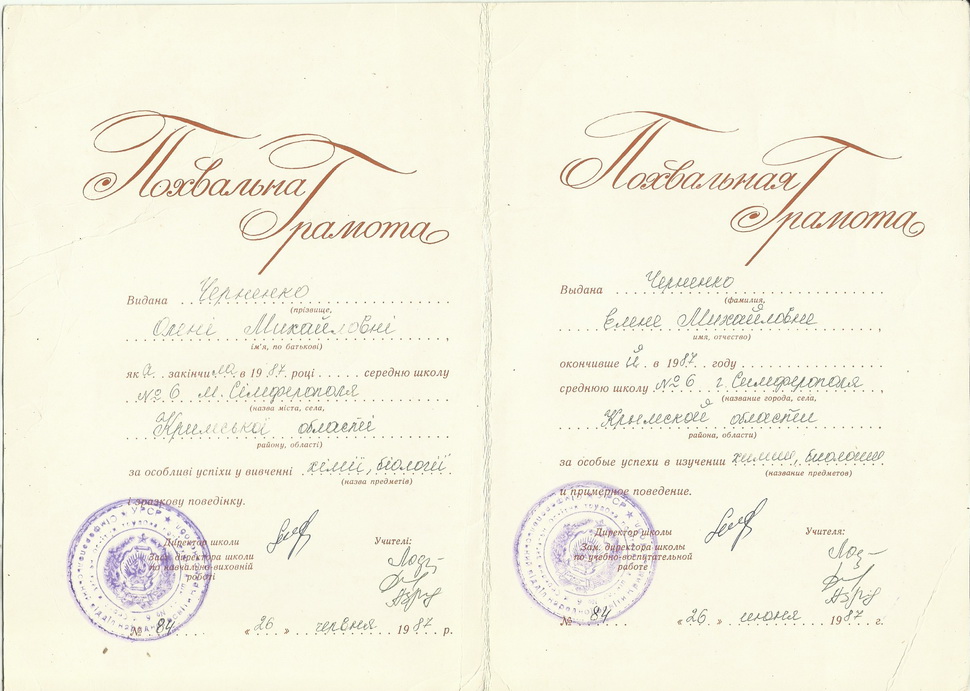 Похвальна
Грамота
Видана Черненко
(прізвище,
Олені Михайловні,
ім'я, по батькові)
як а закінчила в 1987 році середню школу
№ 6 м. Сімферополя
(назва міста, села,
Кримської області
району, області)
за особливі успіхи у вивченні хімії, біології
(назва предметів)
і зразкову поведінку.
УРСР
Директор школи
Учителі:
Заст. директора школи
по навчально-виховній
роботі
№ 84 «26» червня 1987 р.
Похвальная
Грамота
Выдана Черненко
(фамилия,
Елене Михайловне,
имя, отчество)
окончившей в 1987 году
среднюю школу № 6 г. Симферополя
(название города, села,
Крымской области
района, области)
за особые успехи в изучении химии, биологии
(название предметов)
и примерное поведение.
УРСР
Директор школы
Учителя:
Зам. директора школы
по учебно-воспитательной
работе
№ 84 «26» июня 1987 г.